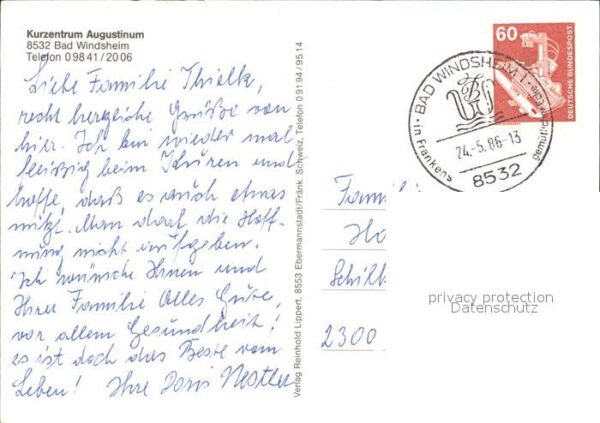 Kurzentrum Augustinum
8532 Bad Windsheim
Telefon 0 98 41 / 20 06
Liebe Familie Thielk,
recht herzliche Grüße von
hier. Ich bin wieder mal
fleißig beim Kuren und
hoffe, daß es auch etwas
nützt. Man darf die Hoff-
nung nicht aufgeben.
Ich wünsche Ihnen und
Ihrer Familie Alles Gute,
vor allem Gesundheit!
es ist doch das Beste vom
Leben! Ihre Doris Nestler
Verlag Reinhold Lippert, 8553 Ebermannstadt/Fränk. Schweiz, Telefon 0 91 94 / 95 14
60
DEUTSCHE BUNDESPOST
BAD WINDSHEIM 1
in Frankens gemütlicher Ecke
24.-5.86-13
8532
Famil
Ho
Schill
2300
privacy protection
Datenschutz